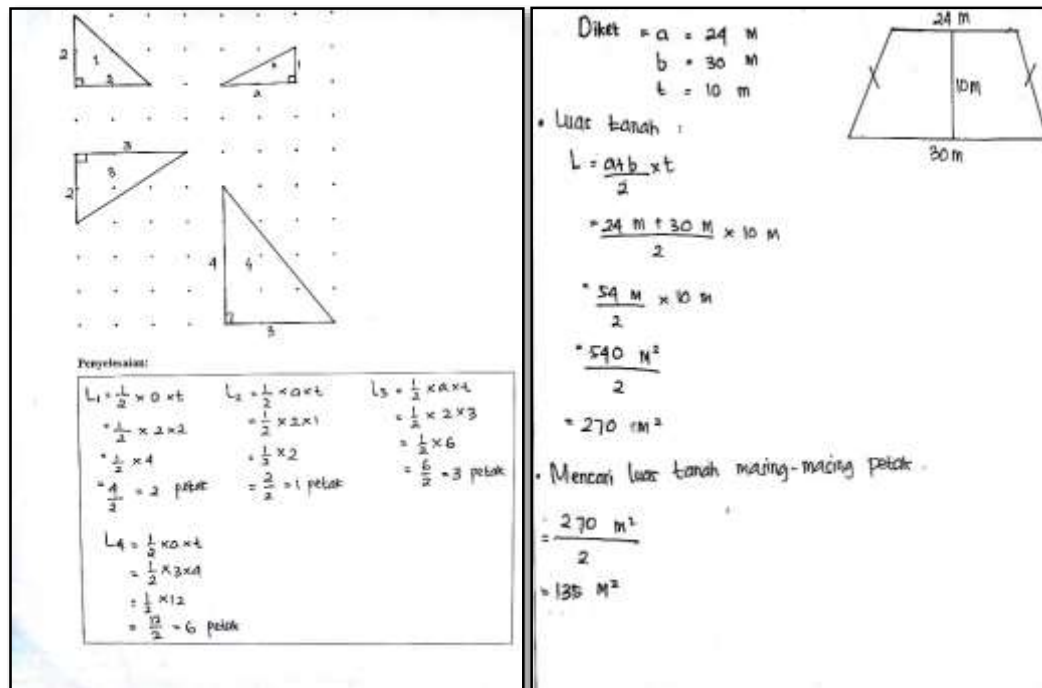 2
1
2
2
1
2
3
3
2
4
4
3
Penyelesaian:
L₁ = 1/2 × a × t
= 1/2 × 2 × 2
= 1/2 × 4
= 4/2 = 2 petak
L₂ = 1/2 × a × t
= 1/2 × 2 × 1
= 1/2 × 2
= 2/2 = 1 petak
L₃ = 1/2 × a × t
= 1/2 × 2 × 3
= 1/2 × 6
= 6/2 = 3 petak
L₄ = 1/2 × a × t
= 1/2 × 3 × 4
= 1/2 × 12
= 12/2 = 6 petak
Diket = a = 24 m
b = 30 m
t = 10 m
24 m
10 m
30 m
• Luas tanah :
L = a+b/2 × t
= 24 m + 30 m/2 × 10 m
= 54 m/2 × 10 m
= 540 m²/2
= 270 m²
• Mencari luas tanah masing-masing petak.
= 270 m²/2
= 135 m²